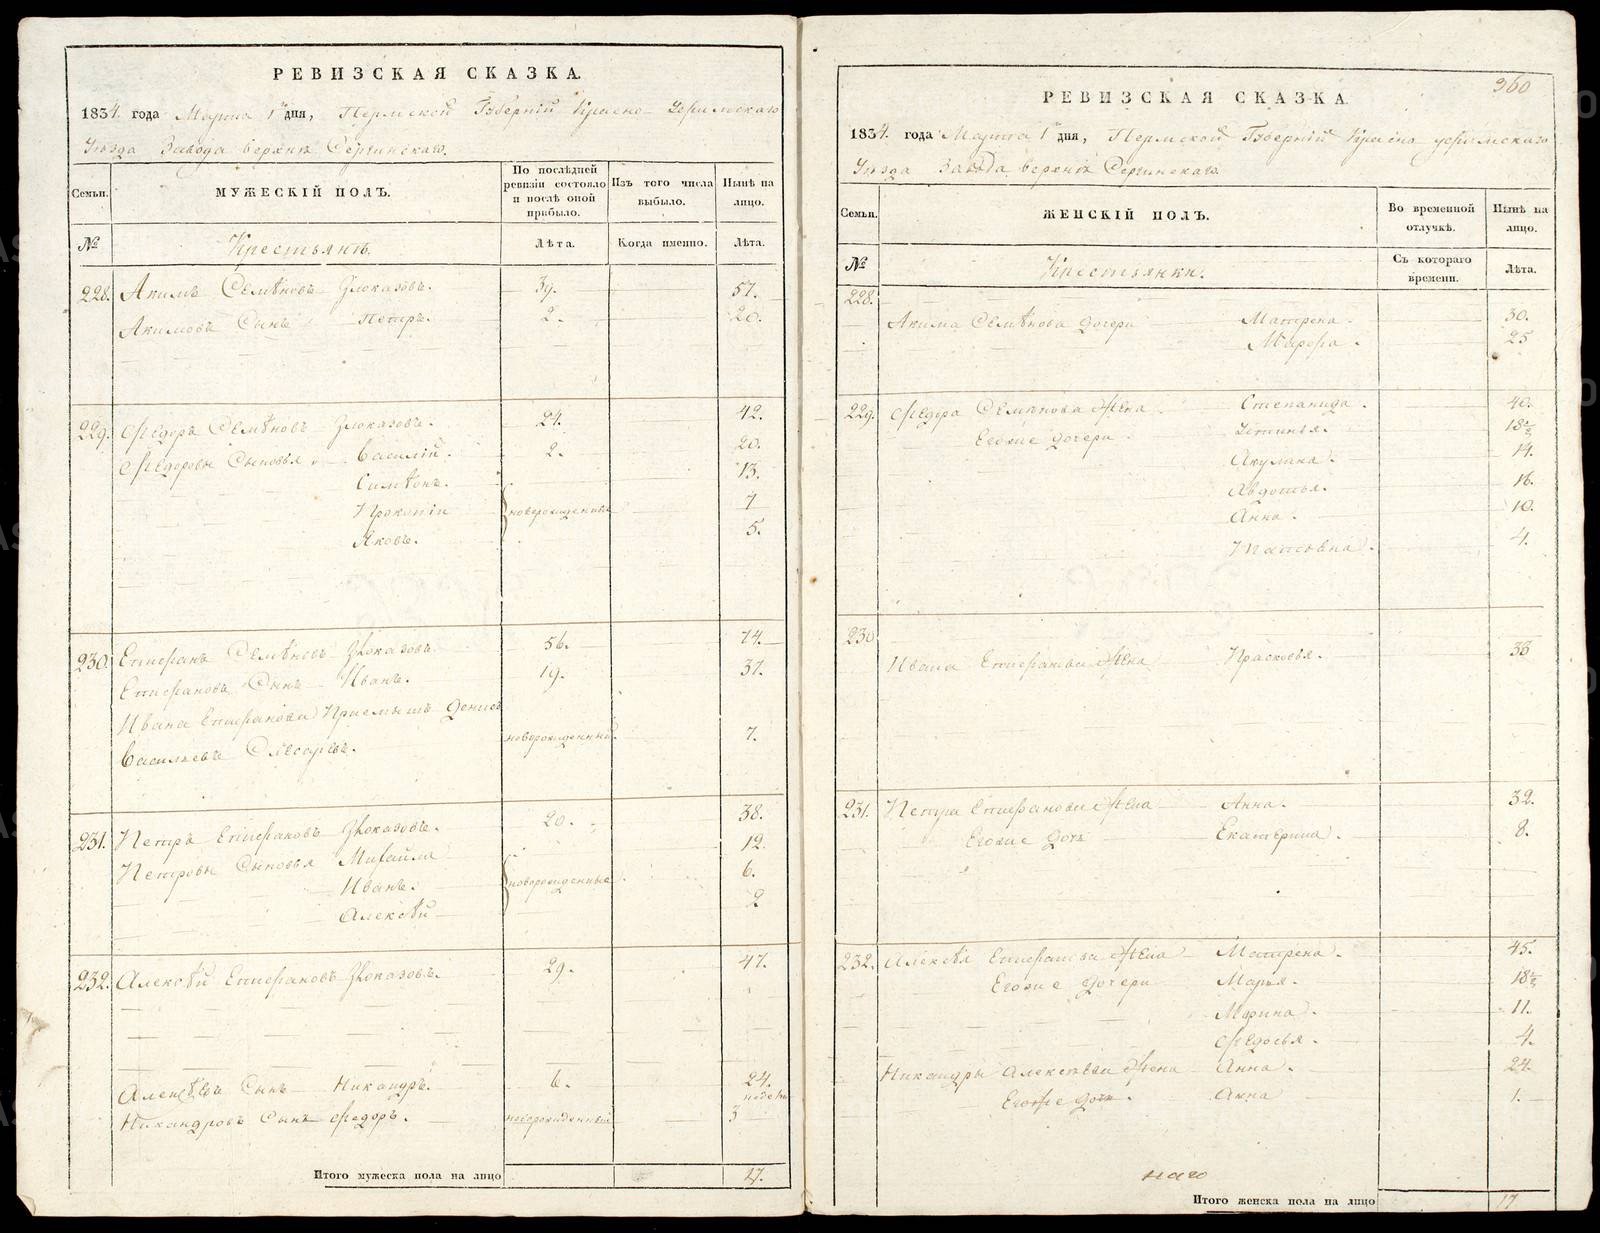 РЕВИЗСКАЯ СКАЗКА.
1834. года Марта 1 дня, Пермской Губернiи Красно Уфимскаго
Уѣзда Завода верхнѣ Сергинскаго.
Семьи. МУЖЕСКIЙ ПОЛЪ. По послѣдней ревизiи состояло и послѣ оной прибыло. Изъ того числа выбыло. Нынѣ на лицо.
№ Крестьянѣ. Лѣта. Когда именно. Лѣта.
228. Акимъ Семѣновъ Злоказовъ. 39. 57.
Акимовъ Сынъ Петръ. 2. 20.
229. Федоръ Семѣновъ Злоказовъ. 24. 42.
Федоровы Сыновья Василiй. 2. 20.
Симѣонъ. 13.
Прокопiи новорожденныя 7
Яковъ. 5.
230. Епифанъ Семѣновъ Злоказовъ 56. 74.
Епифановъ Сынъ Иванъ. 19. 37.
Ивана Епифанова Прiемышъ Денисъ
Васильевъ Слесаревъ. новорожденный. 7.
231. Петръ Епифановъ Злоказовъ. 20. 38.
Петровы Сыновья Михайла 12.
Иванъ. новорожденные 6.
Алексѣй 2
232. Алексѣй Епифановъ Злоказовъ. 29. 47.
Алексѣевъ Сынъ Никандръ. 6. 24.
недель
Никандровъ Сынъ Федоръ. новорожденный 3
Итого мужеска пола на лицо 17.
360
РЕВИЗСКАЯ СКАЗКА
1834. года Марта 1 дня, Пермской Губернiи Красно уфимскаго
Уѣзда Завода верхнѣ Сергинскаго
Семьи. ЖЕНСКIЙ ПОЛЪ. Во временной отлучкѣ. Нынѣ на лицо.
№ Крестьянки. Съ котораго времени. Лѣта.
228.
Акима Семѣнова дочери Матрена. 30.
Марфа. 25
229. Федора Семѣнова Жена Степанида. 40.
Егоже дочери. Устинья. 18½
Акулина. 14.
Авдотья. 16.
Анна. 10.
4.
230
Ивана Епифанова Жена Прасковья. 33
231. Петра Епифанова Жена Анна. 32.
Егоже дочь Екатерина. 8.
232. Алексѣя Епифанова Жена Матрена. 45.
Егоже дочери Марья. 18½
Марина. 11.
Федосья. 4.
Никандры Алексѣева Жена Анна. 24.
Егоже дочь. Анна 1.
Итого женска пола на лицо 17